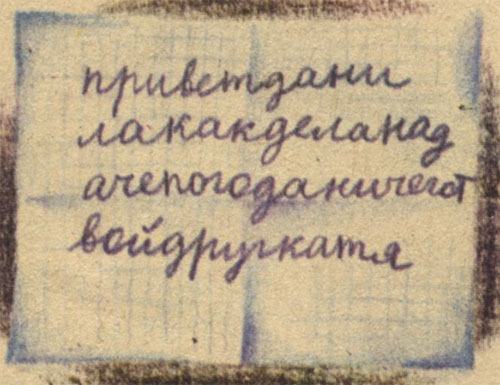 приветдани
лакакделанад
ачепогоданичегот
войдругкатя